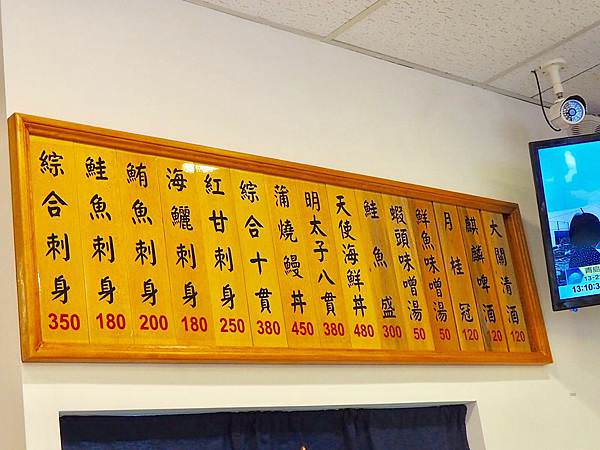 綜合刺身 350
鮭魚刺身 180
鮪魚刺身 200
海鱺刺身 180
紅甘刺身 250
綜合十貫 380
蒲燒鰻丼 450
明太子八貫 380
天使海鮮丼 480
鮭魚盛 300
蝦頭味噌湯 50
鮮魚味噌湯 50
月桂冠 120
麒麟啤酒 120
大關清酒 120
13:10:3